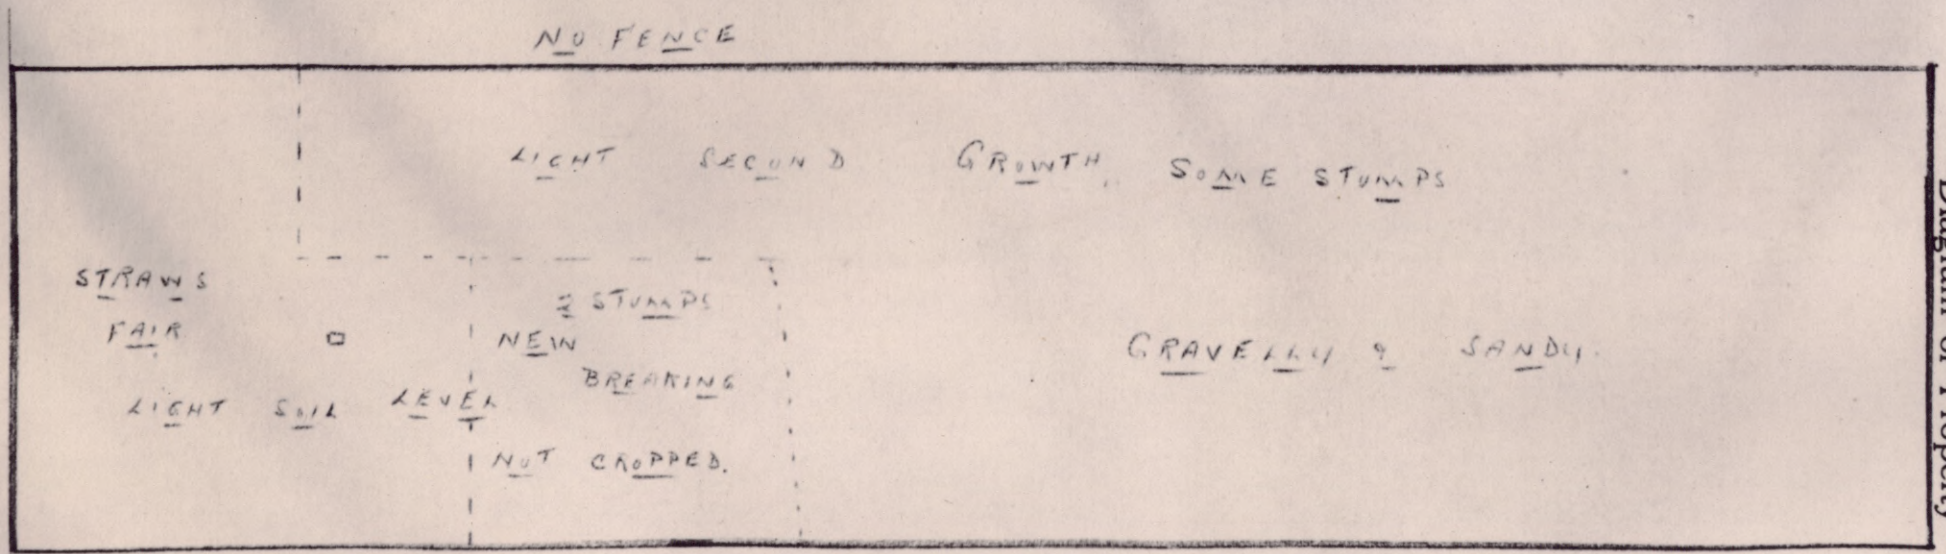 NO FENCE
LIGHT SECOND GROWTH, SOME STUMPS
STRAWS
FAIR
LIGHT SOIL LEVEL
2 STUMPS
NEW
BREAKING
NOT CROPPED.
GRAVELLY & SANDY.
Diagram of Property